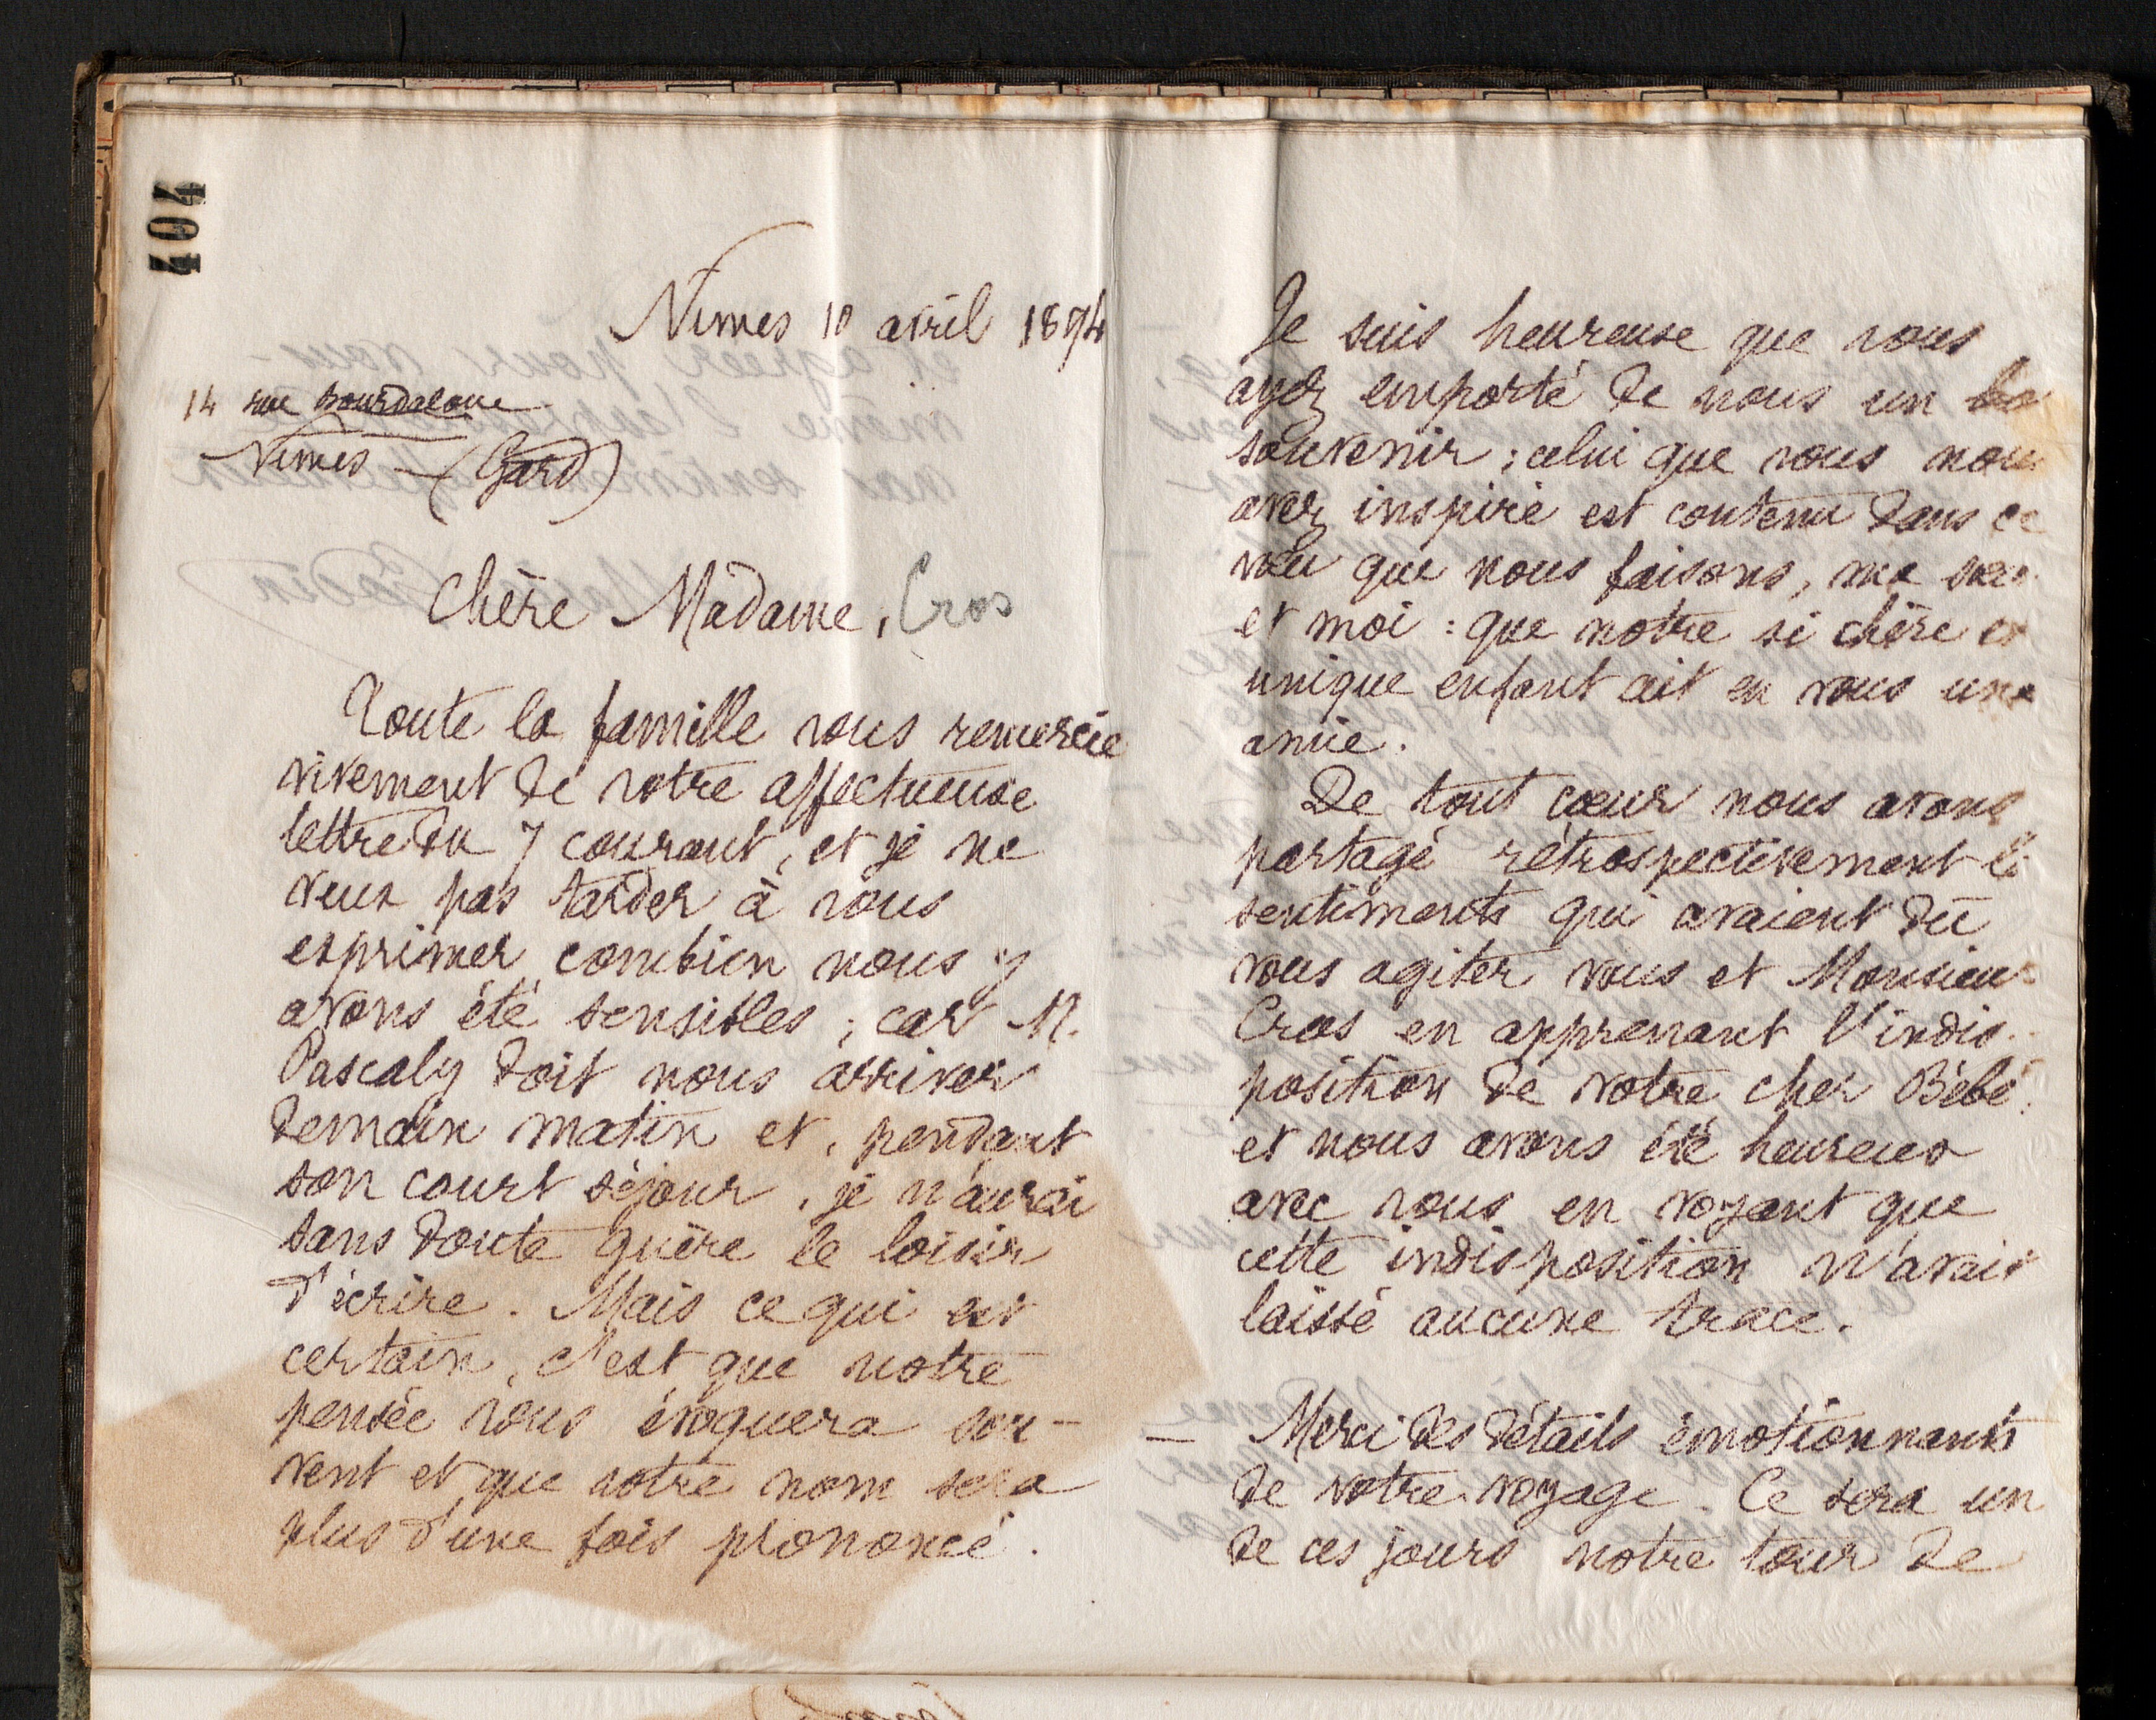 404
Nimes 10 avril 1894
14 rue Bourdaloue
Nimes — (Gard)
Chère Madame, Cros
Toute la famille vous remercie
vivement de votre affectueuse
lettre du 7 courant, et je ne
veux pas tarder à vous
exprimer combien nous y
avons été sensibles ; car M.
Pascaly doit nous arriver
demain matin et, pendant
son court séjour, je n'aurai
sans doute guère le loisir
d'écrire. Mais ce qui est
certain, c'est que notre
pensée vous évoquera sou-
vent et que votre nom sera
plus d'une fois prononcé.
Je suis heureuse que vous
ayez emporté de nous un bo
souvenir ; celui que vous nou
avez inspiré est contenu dans ce
vœu que nous faisons, ma sœu
et moi : que notre si chère et
unique enfant ait en vous une
amie.
De tout cœur nous avons
partagé rétrospectivement le
sentiments qui avaient dû
vous agiter vous et Monsieur
Cros en apprenant l'indis-
position de votre cher Bébé :
et nous avons été heureux
avec vous en voyant que
cette indisposition n'avait
laissé aucune trace.
— Merci des détails émotionnants
de votre voyage. Ce sera un
de ces jours notre tour de